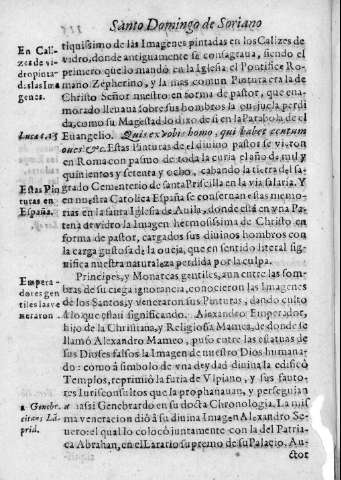 Santo Domingo de Soriano
En Cali-
zes de vi-
dro pinta-
das las Ima
genes.
tiquissimo de las Imagenes pintadas en los Calizes de
vidro, donde antiguamente se consagraua, siendo el
primero que lo mandò en la Iglesia el Pontifice Ro-
mano Zepherino, y la mas comun Pintura era la de
Christo Señor nuestro en forma de pastor, que ena-
morado lleuaua sobre sus hombros la ouejuela perdi
da, como su Magestad lo dixo de si en la Parabola de el
Luca c. 15
Euangelio. Quis ex vobis homo, qui habet centum
oues &c. Estas Pinturas de el diuino pastor se vieron
en Roma con pasmo de toda la curia el año de mil y
quinientos y setenta y ocho, cabando la tierra del sa-
Estas Pin
turas en
España.
grado Cementerio de santa Priscilla en la via salaria. Y
en nuestra Catolica España se conseruan estas memo-
rias en la santa Iglesia de Auila, donde està en vna Pa-
tena de vidro la Imagen hermosissima de Christo en
forma de pastor, cargados sus diuinos hombros con
la carga gustosa de la oueja, que en sentido literal sig-
nifica nuestra naturaleza perdida por la culpa.
Empera-
dores gen
tiles las ve
neraron.
Principes, y Monarcas gentiles, aun entre las som-
bras de su ciega ignorancia, conocieron las Imagenes
de los Santos, y veneraron sus Pinturas, dando culto
à lo que estàn significando. Alexandro Emperador,
hijo de la Christiana, y Religiosa Mamea, de donde se
llamò Alexandro Mameo, puso entre las estatuas de
sus Dioses falsos la Imagen de nuestro Dios humana-
do: como à simbolo de vna deydad diuina la edificò
Templos, reprimiò la furia de Vlpiano, y sus fauto-
res Iurisconsultos que la prophanauan, y perseguian
a Genebr.
citans Lã-
prid.
a assi Genebrardo en su docta Chronologia. La mis
ma veneracion diò à su diuina Imagen Alexandro Se-
uero: el qual lo colocò juntamente con la del Patriar-
ca Abrahan, en el Larario supremo de su Palacio. Au-
ctor